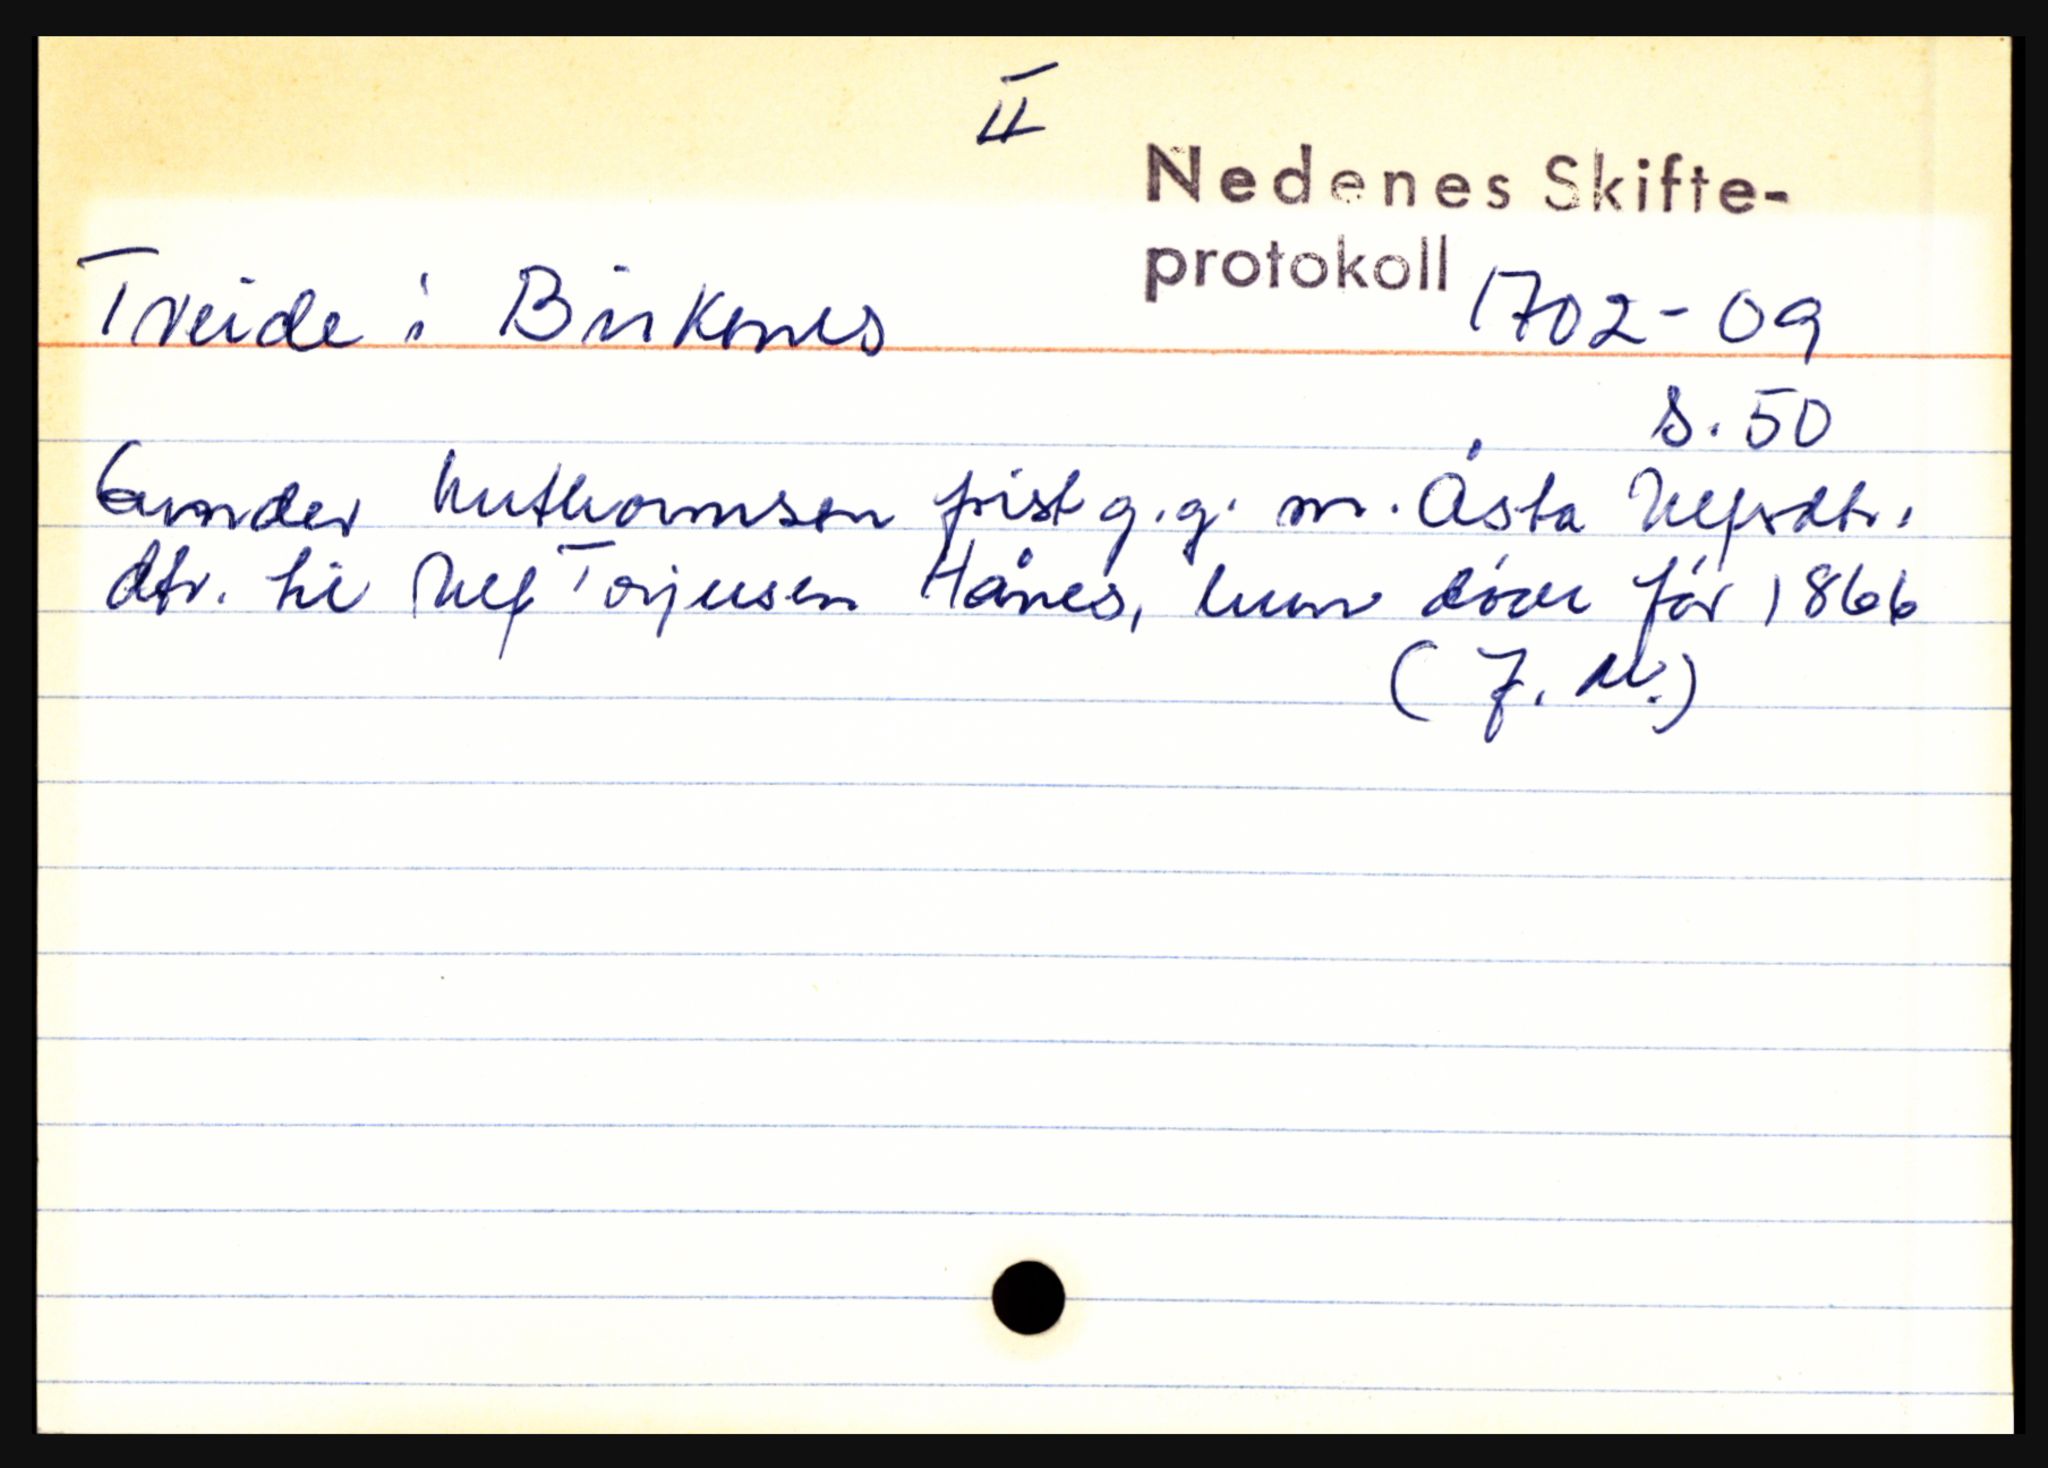 II
Nedenes Skifte-
protokoll 1702-09
Tveide i Birkenes
s. 50
Gunder Guthormsen first g.g. m. Åsta Ulfsdtr.
dtr. til Ulf Torjusen Hånes, hun döde før 1866